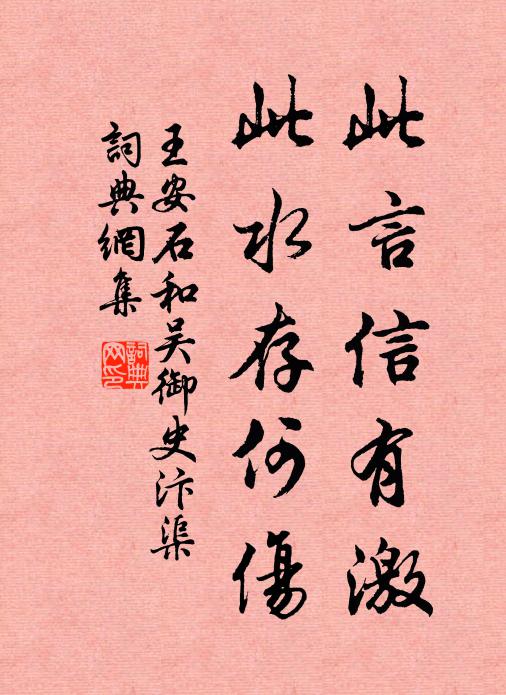 此言信有激
此水存何傷
王安石和吴御史汴渠
詞典網集
詞典網印